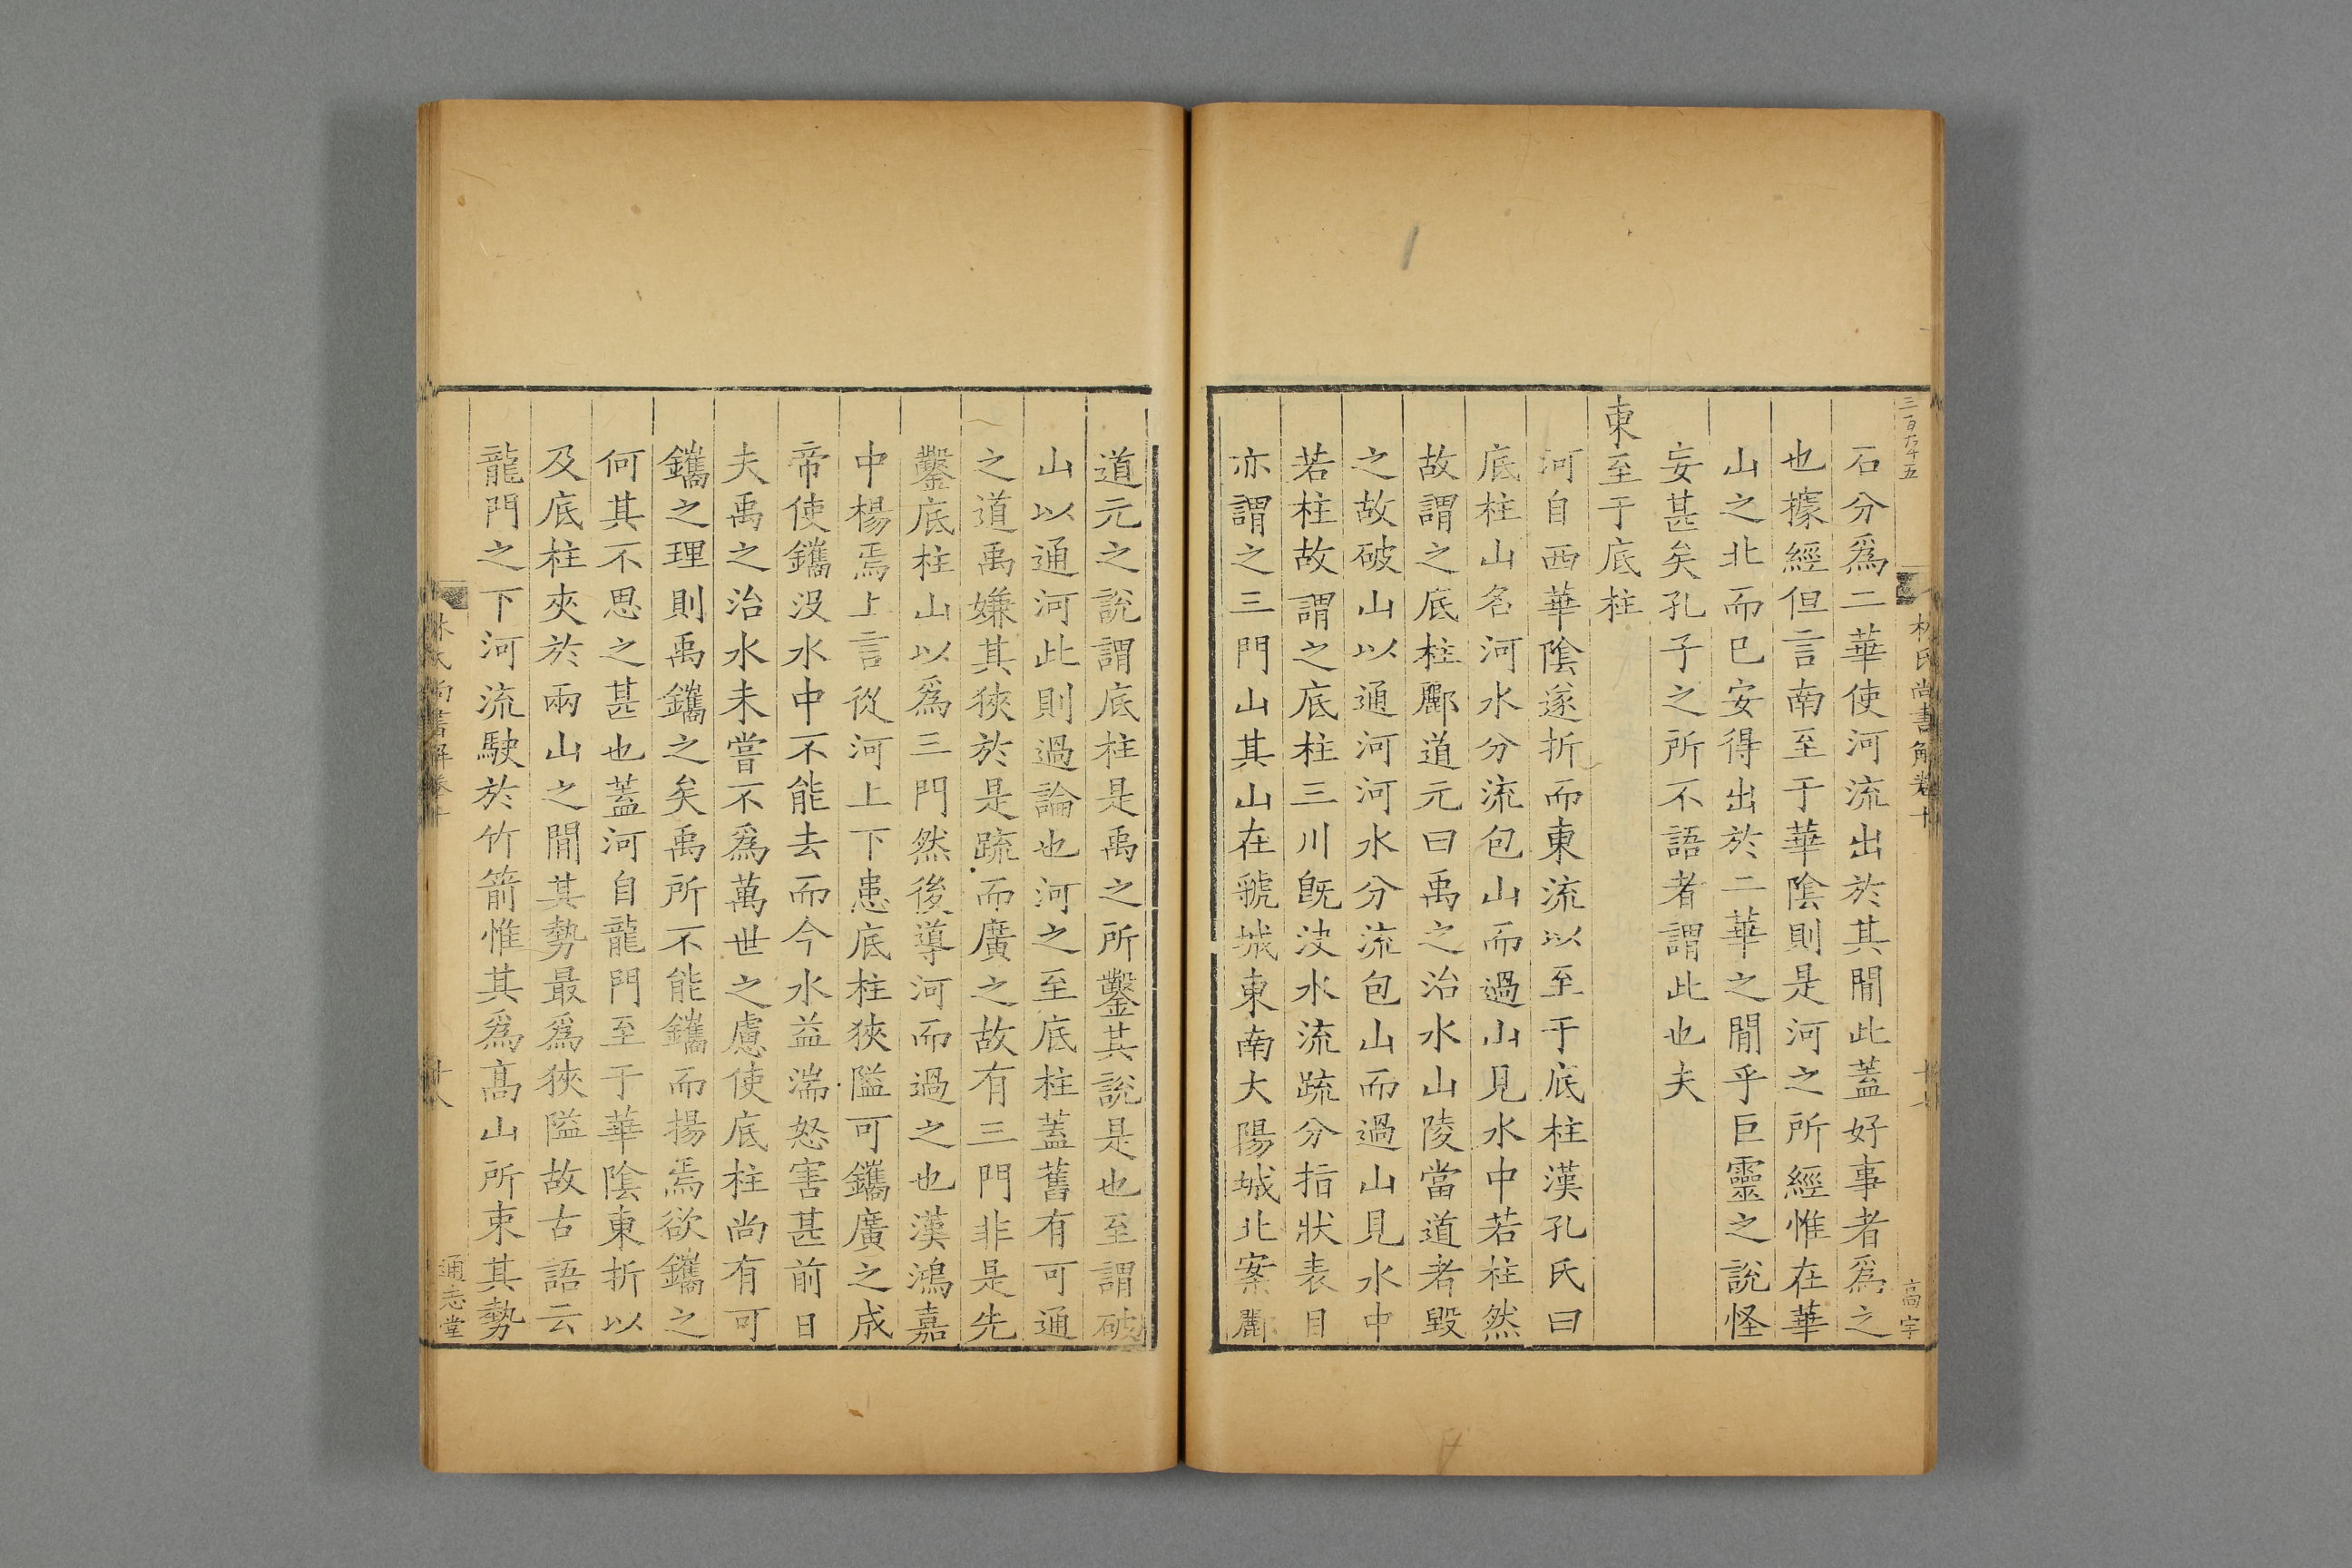 林氏尚書解卷十
高宇
石分爲二華使河流出於其閒此蓋好事者爲之
也據經但言南至于華陰則是河之所經惟在華
山之北而已安得出於二華之閒乎巨靈之說怪
妄甚矣孔子之所不語者謂此也夫
東至于底柱
河自西華陰遂折而東流以至于底柱漢孔氏曰
底柱山名河水分流包山而過山見水中若柱然
故謂之底柱酈道元曰禹之治水山陵當道者毀
之故破山以通河河水分流包山而過山見水中
若柱故謂之底柱三川旣決水流疏分指狀表目
亦謂之三門山其山在虢城東南大陽城北案酈
道元之說謂底柱是禹之所鑿其說是也至謂破
山以通河此則過論也河之至底柱蓋舊有可通
之道禹嫌其狹於是疏而廣之故有三門非是先
鑿底柱山以爲三門然後導河而過之也漢鴻嘉
中楊焉上言從河上下患底柱狹隘可鑴廣之成
帝使鑴没水中不能去而今水益湍怒害甚前日
夫禹之治水未嘗不爲萬世之慮使底柱尚有可
鑴之理則禹鑴之矣禹所不能鑴而揚焉欲鑴之
何其不思之甚也蓋河自龍門至于華陰東折以
及底柱夾於兩山之閒其勢最爲狹隘故古語云
龍門之下河流駛於竹箭惟其爲高山所束其勢
林氏尚書解卷十
十八
通志堂